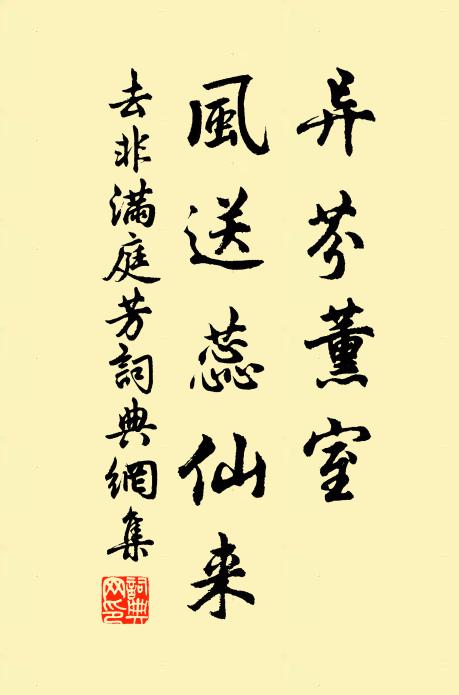 异芬薰室
風送蕊仙来
去非满庭芳詞典網集
詞典網印